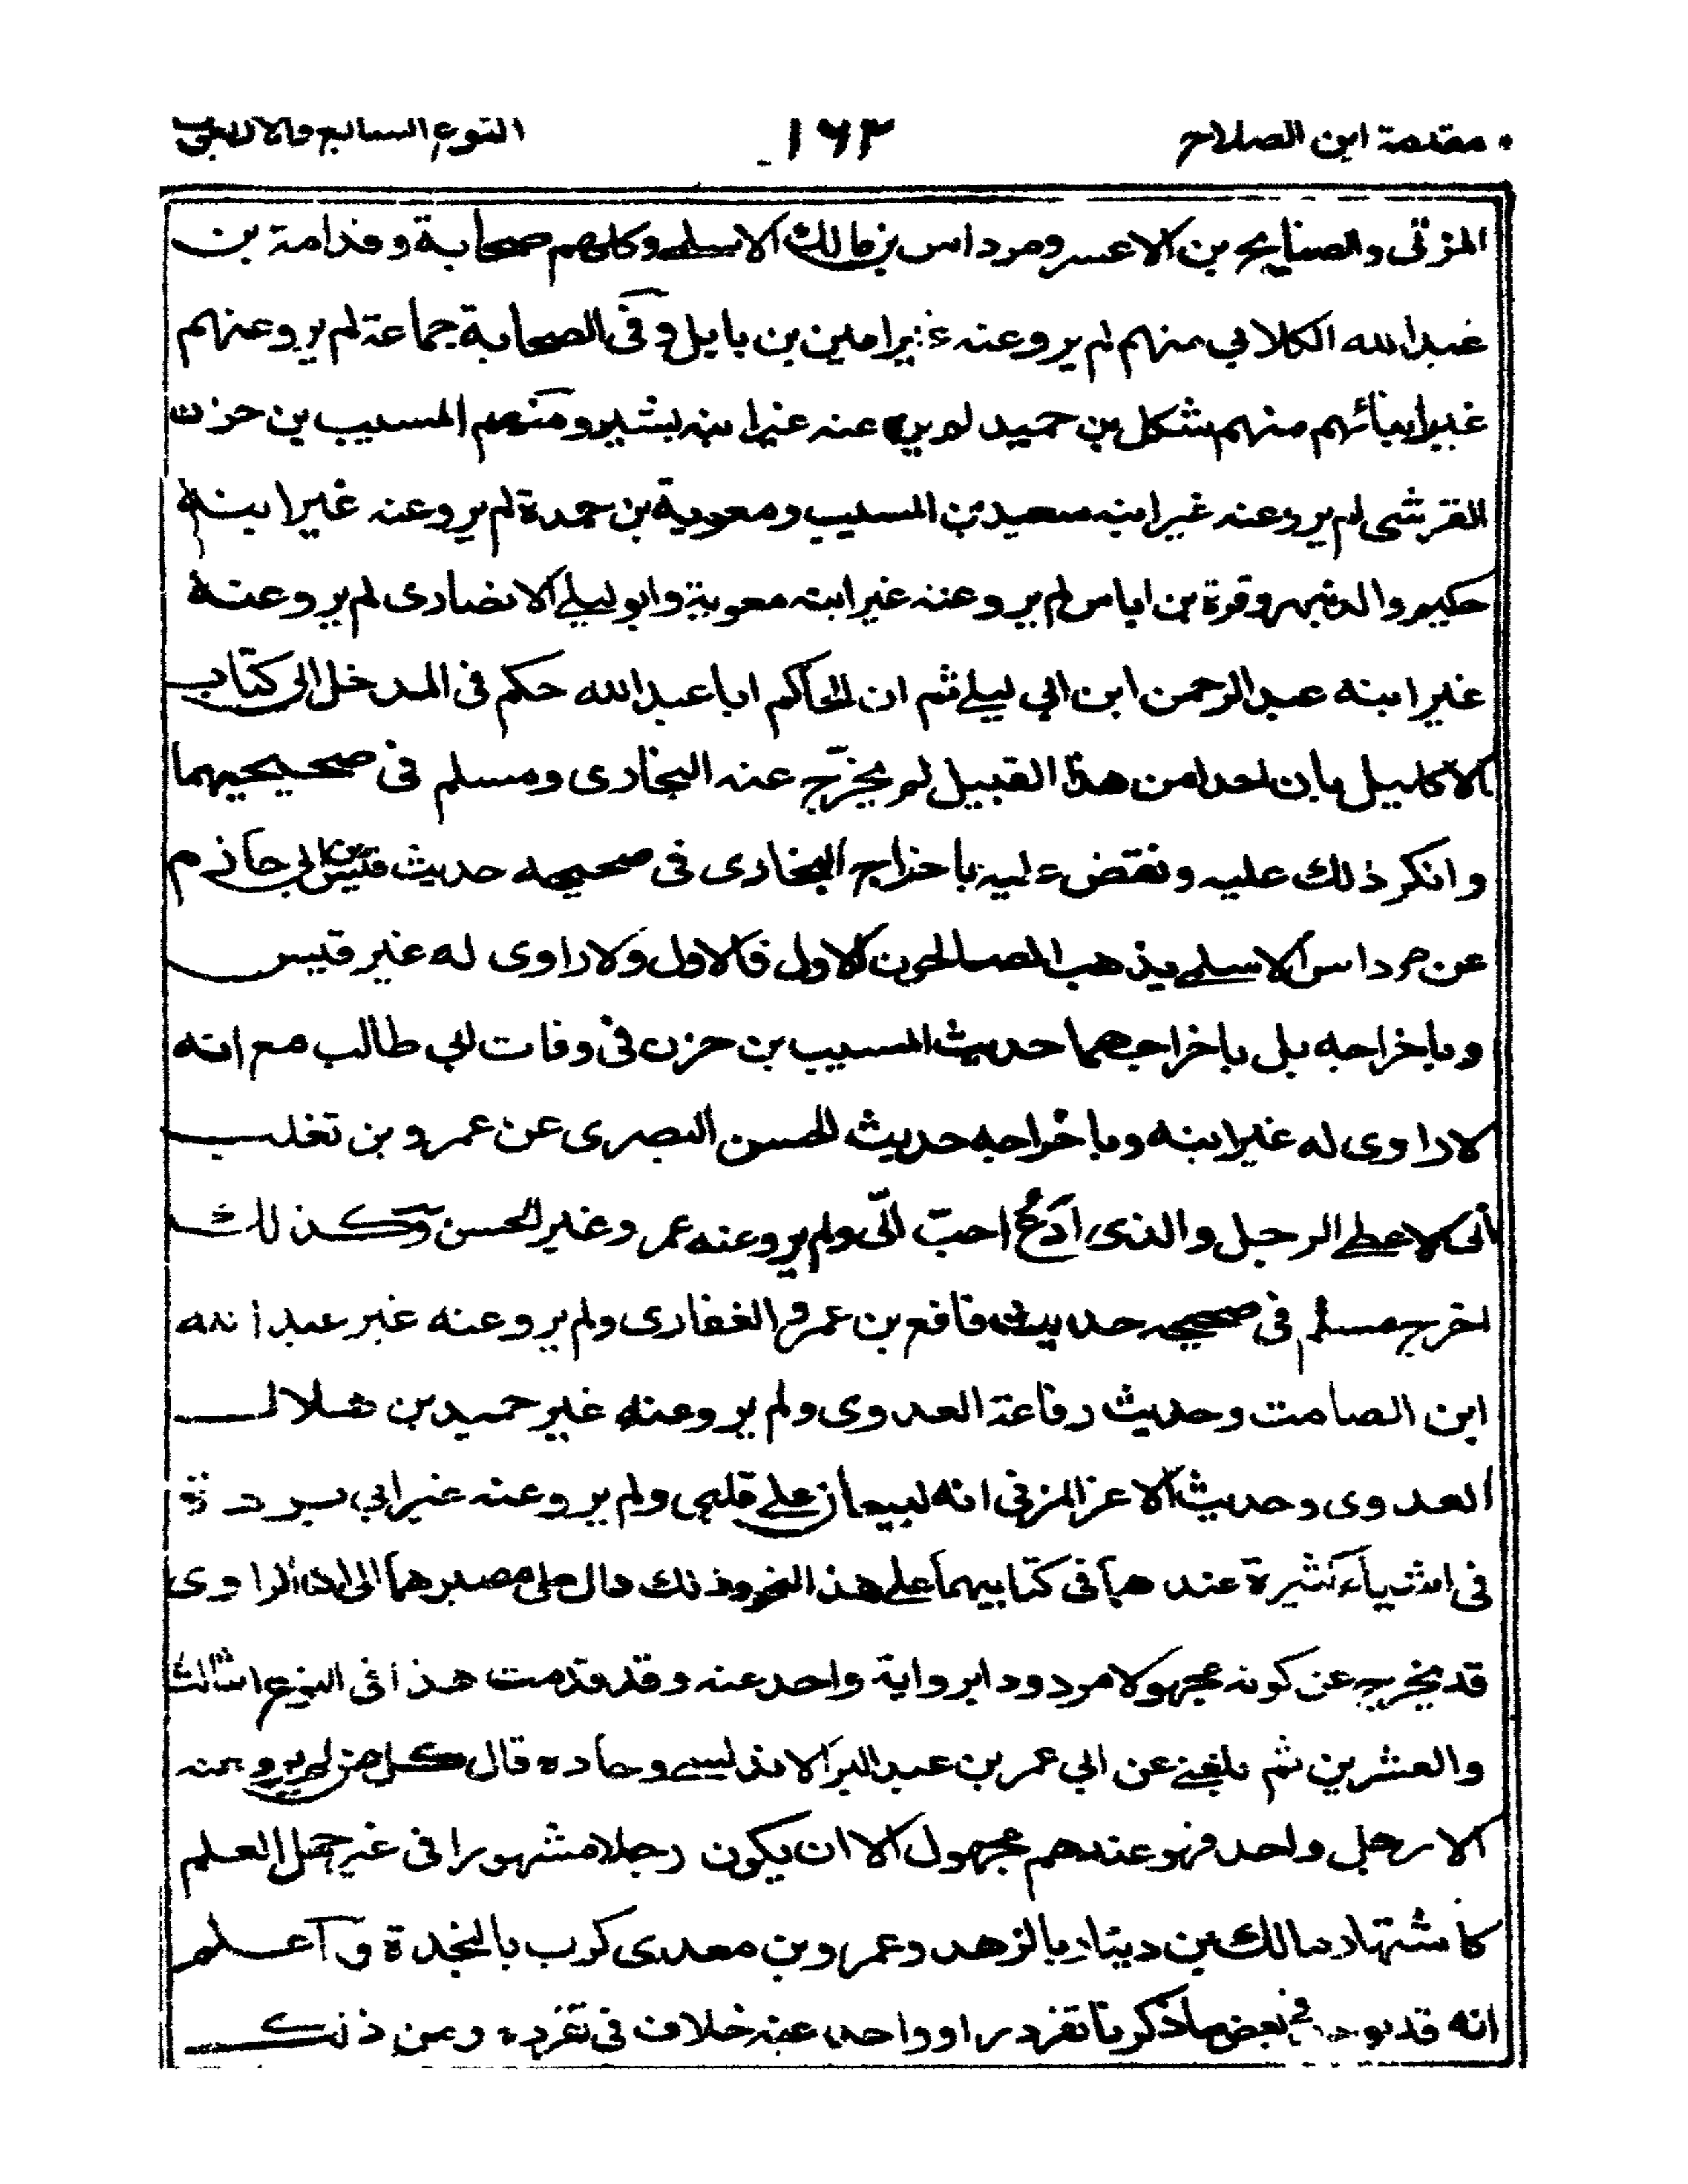 مقدمة ابن الصلاح ١٦٣ النوع السابع والاربعون
المزنی والصنابح بن الاعسر ومرداس بن مالك الاسلمے وكلهم صحابة وقدامة بن
عبدالله الكلابي منهم لم يرو عنه غير امين بن بايل وفی الصحابة جماعة لم يرو عنهم
غير ابنائهم منهم شكل بن حميد لم يرو عنه غير ابنه بشير ومنهم المسيب بن حزن
القرشی لم يرو عنه غير ابنه سعيد بن المسيب ومعوية بن حمدة لم يرو عنه غير ابنه
حكيم والد بهز وقرة بن اياس لم يرو عنه غير ابنه معوية وابو ليلے الانصاری لم يرو عنه
غير ابنه عبدالرحمن ابن ابي ليلے ثم ان الحاكم ابا عبدالله حكم فی المدخل الی كتاب
الاكليل بان احدا من هذا القبيل لم يخرّج عنه البخاری ومسلم فی صحيحيهما
وانكر ذلك عليه ونقض عليه باخراج البخاری فی صحيحه حديث قيس بن ابي حازم
عن مرداس الاسلمے يذهب الصالحون الاول فالاول ولا راوی له غير قيس
وباخراجه بل باخراجهما حديث المسيب بن حزن فی وفات ابي طالب مع انه
لا راوی له غير ابنه وباخراجه حديث الحسن البصری عن عمرو بن تغلب
انی لاعطے الرجل والذی ادع احبّ الیّ ولم يرو عنه عمرو غير الحسن وكذلك
اخرج مسلم فی صحيحه حديث فافع بن عمرو الغفاری ولم يرو عنه غير عبدالله
ابن الصامت وحديث رفاعة العدوی ولم يرو عنه غير حميد بن هلال
العدوی وحديث الاغر المزنی انه ليغان علے قلبی ولم يرو عنه غير ابي بردة
فی اشياء كثيرة عندهما فی كتابيهما علے هذا النحو وذلك دال علی مصيرهما الی ان الراوی
قد يخرج عن كونه مجهولا مردودا برواية واحد عنه وقد قدمت هذا فی النوع الثالث
والعشرين ثم بلغنے عن ابي عمر بن عبدالبر الاندلسے وجاده قال كل من لم يرو عنه
الا رجل واحد فهو عندهم مجهول الا ان يكون رجلا مشهورا فی غير حمل العلم
كاشتهار مالك بن دينار بالزهد وعمرو بن معدی كرب بالنجدة واعلم
انه قد يوجد فی بعض ما ذكرنا تفرد راو واحد عنه خلاف فی تفرده ومن ذلك